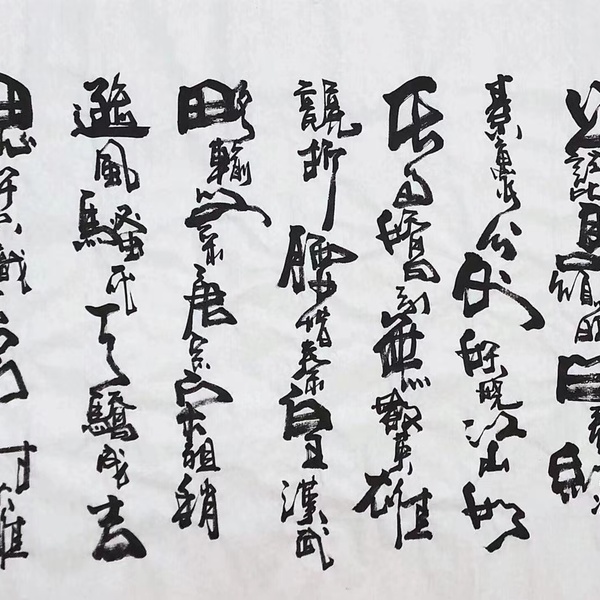 公試比高須晴日看紅
裝素裹分外妖嬈江山如
此多嬌引無數英雄
競折腰惜秦皇漢武
略輸文采唐宗宋祖稍
遜風騷一代天驕成吉
思汗只識彎弓射大雕